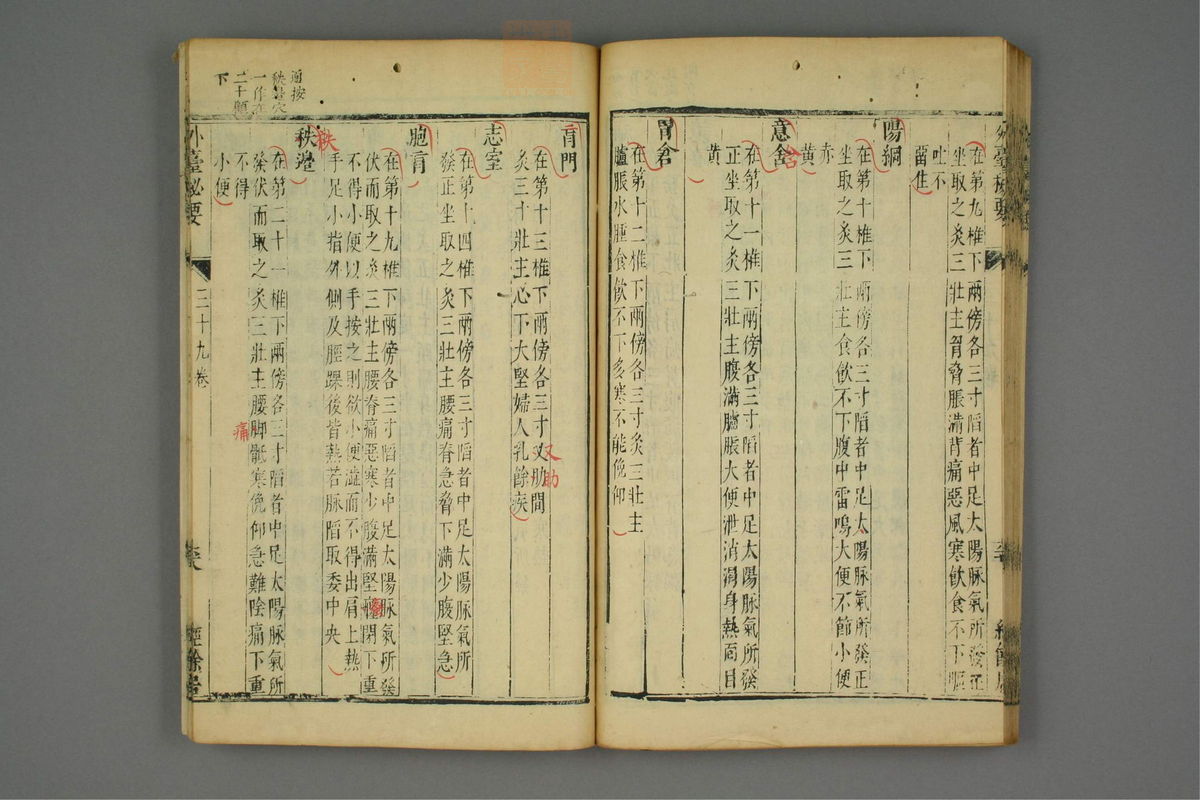 在第九椎下兩傍各三寸䧟者中足太陽脉氣所發正
坐取之灸三壯主胷脅脹滿背痛惡風寒飲食不下嘔
吐不
留住
陽綱
在第十椎下兩傍各三寸䧟者中足太陽脉氣所發正
坐取之灸三壯主食飲不下腹中雷鳴大便不節小便
赤
黄
意舍
在第十一椎下兩傍各三寸䧟者中足太陽脉氣所發
正坐取之灸三壯主腹滿臚脹大便泄消渴身熱面目
黄
胃倉
在第十二椎下兩傍各三寸灸三壯主
臚脹水腫食飲不下多寒不能俛仰
肓門
在第十三椎下兩傍各三寸㕚肋間
灸三十壯主心下大堅婦人乳餘疾
又肋
志室
在第十四椎下兩傍各三寸䧟者中足太陽脉氣所
發正坐取之灸三壯主腰痛脊急脅下滿少腹堅急
胞肓
在第十九椎下兩傍各三寸䧟者中足太陽脉氣所發
伏而取之灸三壯主腰脊痛惡寒少腹滿堅癃閉下重
不得小便以手按之則欲小便澁而不得出肩上熱
手足小指外側及脛踝後皆熱若脉䧟取委中央
秩
秩邊
在第二十一椎下兩傍各三寸䧟者中足太陽脉氣所
發伏而取之灸三壯主腰脚骶寒俛仰急難陰痛下重
不得
小便
痛
衍按
秩邊穴
一作在
二十顀
下
外臺秘要
三十九卷
經餘居